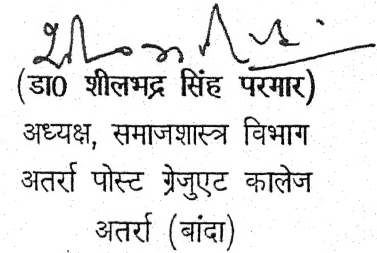 (डा0 शीलभद्र सिंह परमार)
अध्यक्ष, समाजशास्त्र विभाग
अतर्रा पोस्ट ग्रेजुएट कालेज
अतर्रा (बांदा)